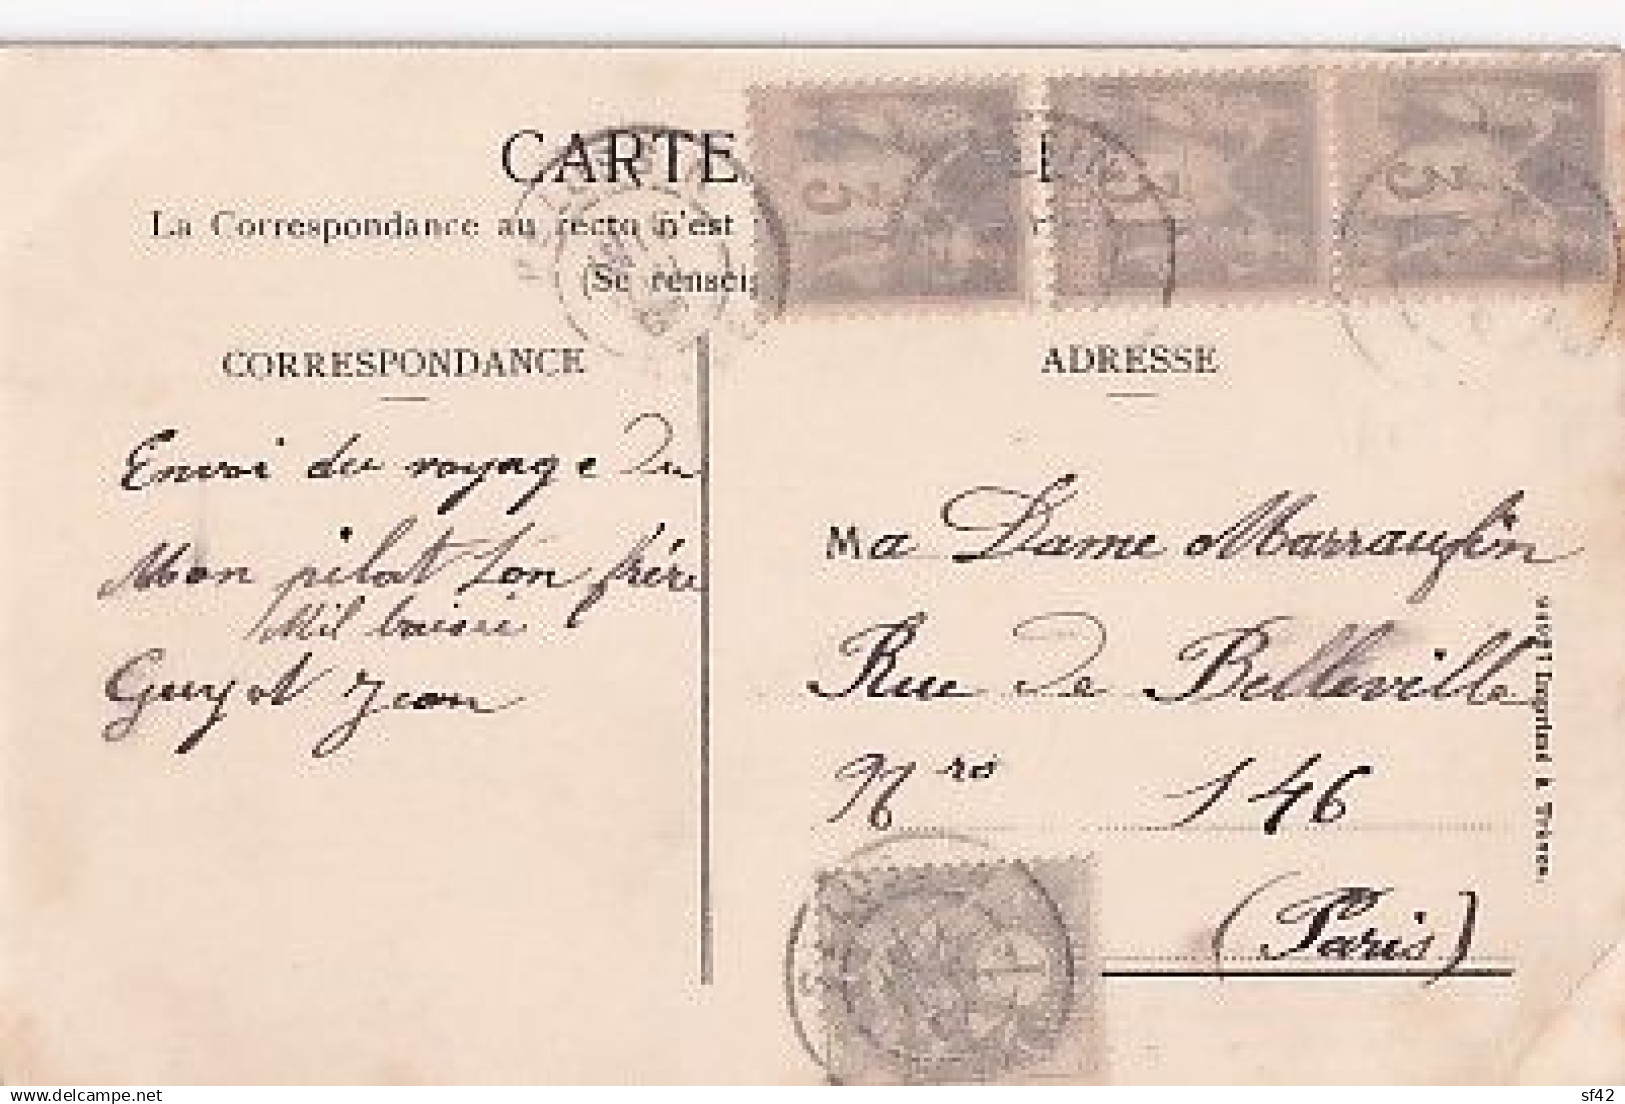 CARTE
La Correspondance au recto n'est
(Se rensei
CORRESPONDANCE
ADRESSE
Envoi du voyage du
Mon pilot ton frére
Mil baisié
Guyot Jean
Ma Dame Marraufin
Rue de Belleville
Nro 146
(Paris)
Imprimé à Trèves.
delcampe.net
sf42